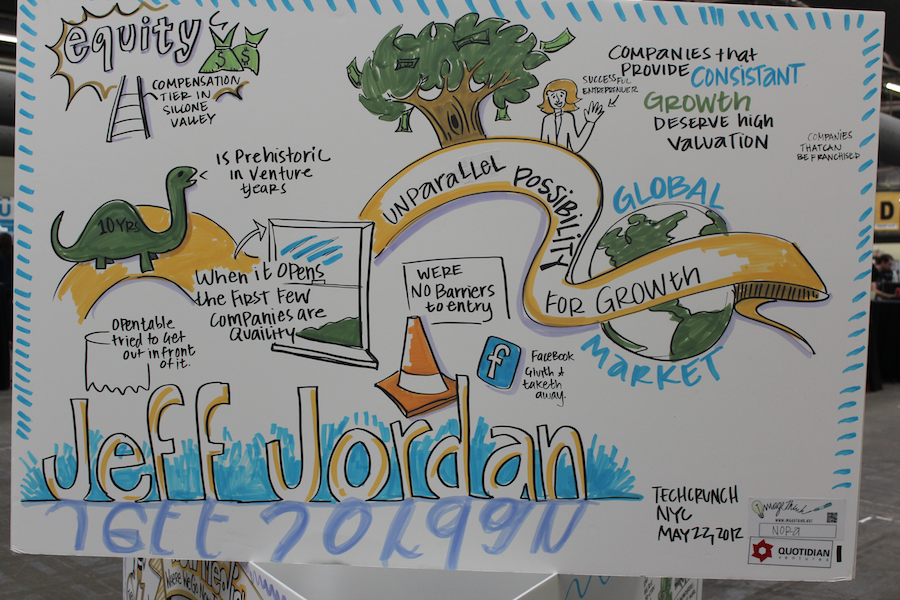 equity
COMPENSATION
TIER IN
SILICONE
VALLEY
SUCCESSFUL
ENTREPRENUER
COMPANIES that
PROVIDE CONSISTANT
Growth
DESERVE high
VALUATION
COMPANIES
THAT CAN
BE FRANCHISED
10 YRS
Is Prehistoric
in Venture
years
UNPARALLEL POSSIBILITY
FOR GROWTH
GLOBAL
MARKET
When it OPENS
the FIRST FEW
COMPANIES are
QUAILITY
WERE
NO BARRIERS
to entry
OPENTABLE
tried to Get
out in front
of it.
f
FACEBOOK
GIVITH &
taketh
away.
Jeff Jordan
TECHCRUNCH
NYC
MAY 22, 2012
Image Think
NORA
QUOTIDIAN
VENTURES
D